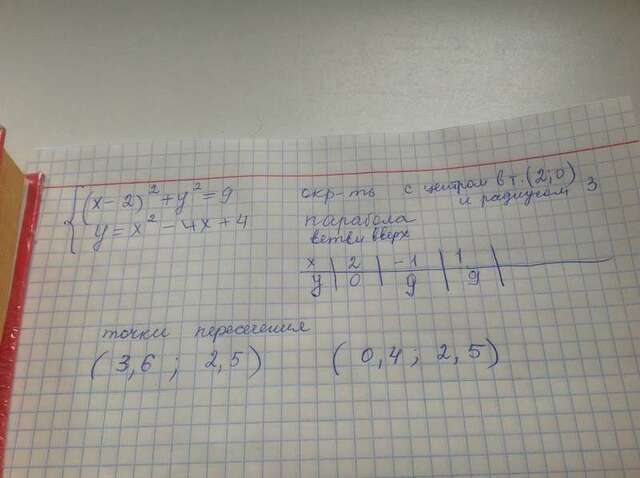 (x-2)² + y² = 9 окр-ть с центром в т. (2;0)
и радиусом 3
y = x² - 4x + 4 парабола
ветви вверх
x | 2 | -1 | 1 |
y | 0 | 9 | 9 |
точки пересечения
(3,6 ; 2,5) (0,4 ; 2,5)